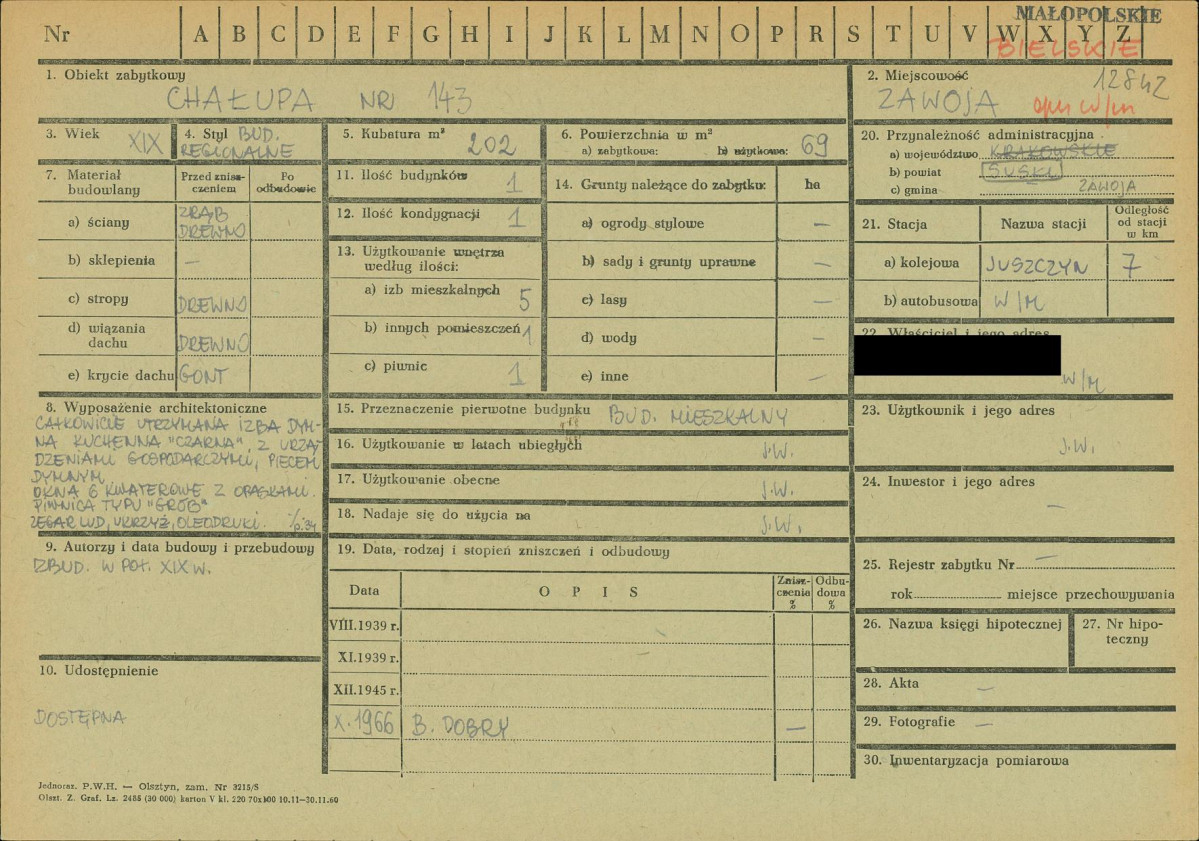 Nr A B C D E F G H I J K L M N O P R S T U V W X Y Z
MAŁOPOLSKIE
BIELSKIE
1. Obiekt zabytkowy
CHAŁUPA NR 143
2. Miejscowość
12842
ZAWOJA
3. Wiek XIX
4. Styl BUD.
REGIONALNE
5. Kubatura m³
202
6. Powierzchnia w m²
a) zabytkowa: b) użytkowa: 69
20. Przynależność administracyjna
a) województwo KRAKOWSKIE
b) powiat SUSKI
c) gmina ZAWOJA
7. Materiał budowlany
Przed zniszczeniem
Po odbudowie
a) ściany ZRĄB
DREWNO
b) sklepienia —
c) stropy DREWNO
d) wiązania dachu DREWNO
e) krycie dachu GONT
11. Ilość budynków 1
12. Ilość kondygnacji 1
13. Użytkowanie wnętrza
według ilości:
a) izb mieszkalnych 5
b) innych pomieszczeń 1
c) piwnic 1
14. Grunty należące do zabytku: ha
a) ogrody stylowe —
b) sady i grunty uprawne —
c) lasy —
d) wody —
e) inne —
21. Stacja Nazwa stacji Odległość
od stacji
w km
a) kolejowa JUSZCZYN 7
b) autobusowa W/M
22. Właściciel i jego adres
W/M
8. Wyposażenie architektoniczne
CAŁKOWICIE UTRZYMANA IZBA DYM-
NA KUCHENNA "CZARNA", Z URZĄ-
DZENIAMI GOSPODARCZYMI, PIECEM
DYMNYM
OKNA 6 KWATEROWE Z OPASKAMI.
PIWNICA TYPU "GRÓB"
ZEGAR LUD, UKRZYŻ, OLEODRUKI.
15. Przeznaczenie pierwotne budynku BUD. MIESZKALNY
16. Użytkowanie w latach ubiegłych J.W.
17. Użytkowanie obecne J.W.
18. Nadaje się do użycia na J.W.
23. Użytkownik i jego adres
J.W.
24. Inwestor i jego adres
—
9. Autorzy i data budowy i przebudowy
IZBUD. W POŁ. XIX W.
19. Data, rodzaj i stopień zniszczeń i odbudowy
Data OPIS Zniszczenia % Odbudowa %
VIII.1939 r.
XI.1939 r. —
XII.1945 r.
X.1966 B. DOBRY —
25. Rejestr zabytku Nr —
rok miejsce przechowywania
26. Nazwa księgi hipotecznej
27. Nr hipo-
teczny
28. Akta —
29. Fotografie —
30. Inwentaryzacja pomiarowa
10. Udostępnienie
DOSTĘPNA
Jednoraz. P.W.H. — Olsztyn, zam. Nr 3215/S
Olszt. Z. Graf. Lz. 2485 (30 000) karton V kl. 220 70x100 10.11—30.11.60